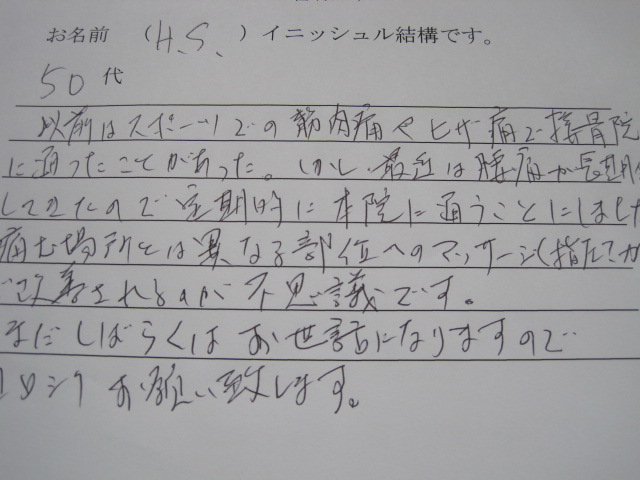 お名前 （H.S.）イニッシュル結構です。
50代
以前はスポーツでの筋肉痛やヒザ痛で接骨院
に通ったことがあった。しかし最近は腰痛が長期化
してきたので定期的に本院に通うことにしました
痛む場所とは異なる部位へのマッサージ(指圧?)が
改善されるのが不思議です。
まだしばらくはお世話になりますので
ヨロシクお願い致します。